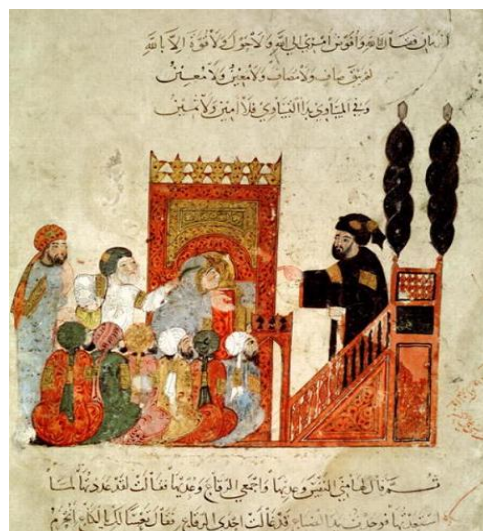 وأفوض أمري إلى الله ولا حول ولا قوة إلا بالله
لم يبق صاف ولا مصاف ولا معين ولا معين
وفي المساوي بدا التساوي فلا أمين ولا ثمين
ثم قال لها مني النفس وعديها واجمعي الرقاع وعديها فقالت لقد عددتها لما
استعدتها فوجدت يد الضياع قد غالت إحدى الرقاع فقال تعسا لك يا لكاع أنحرم